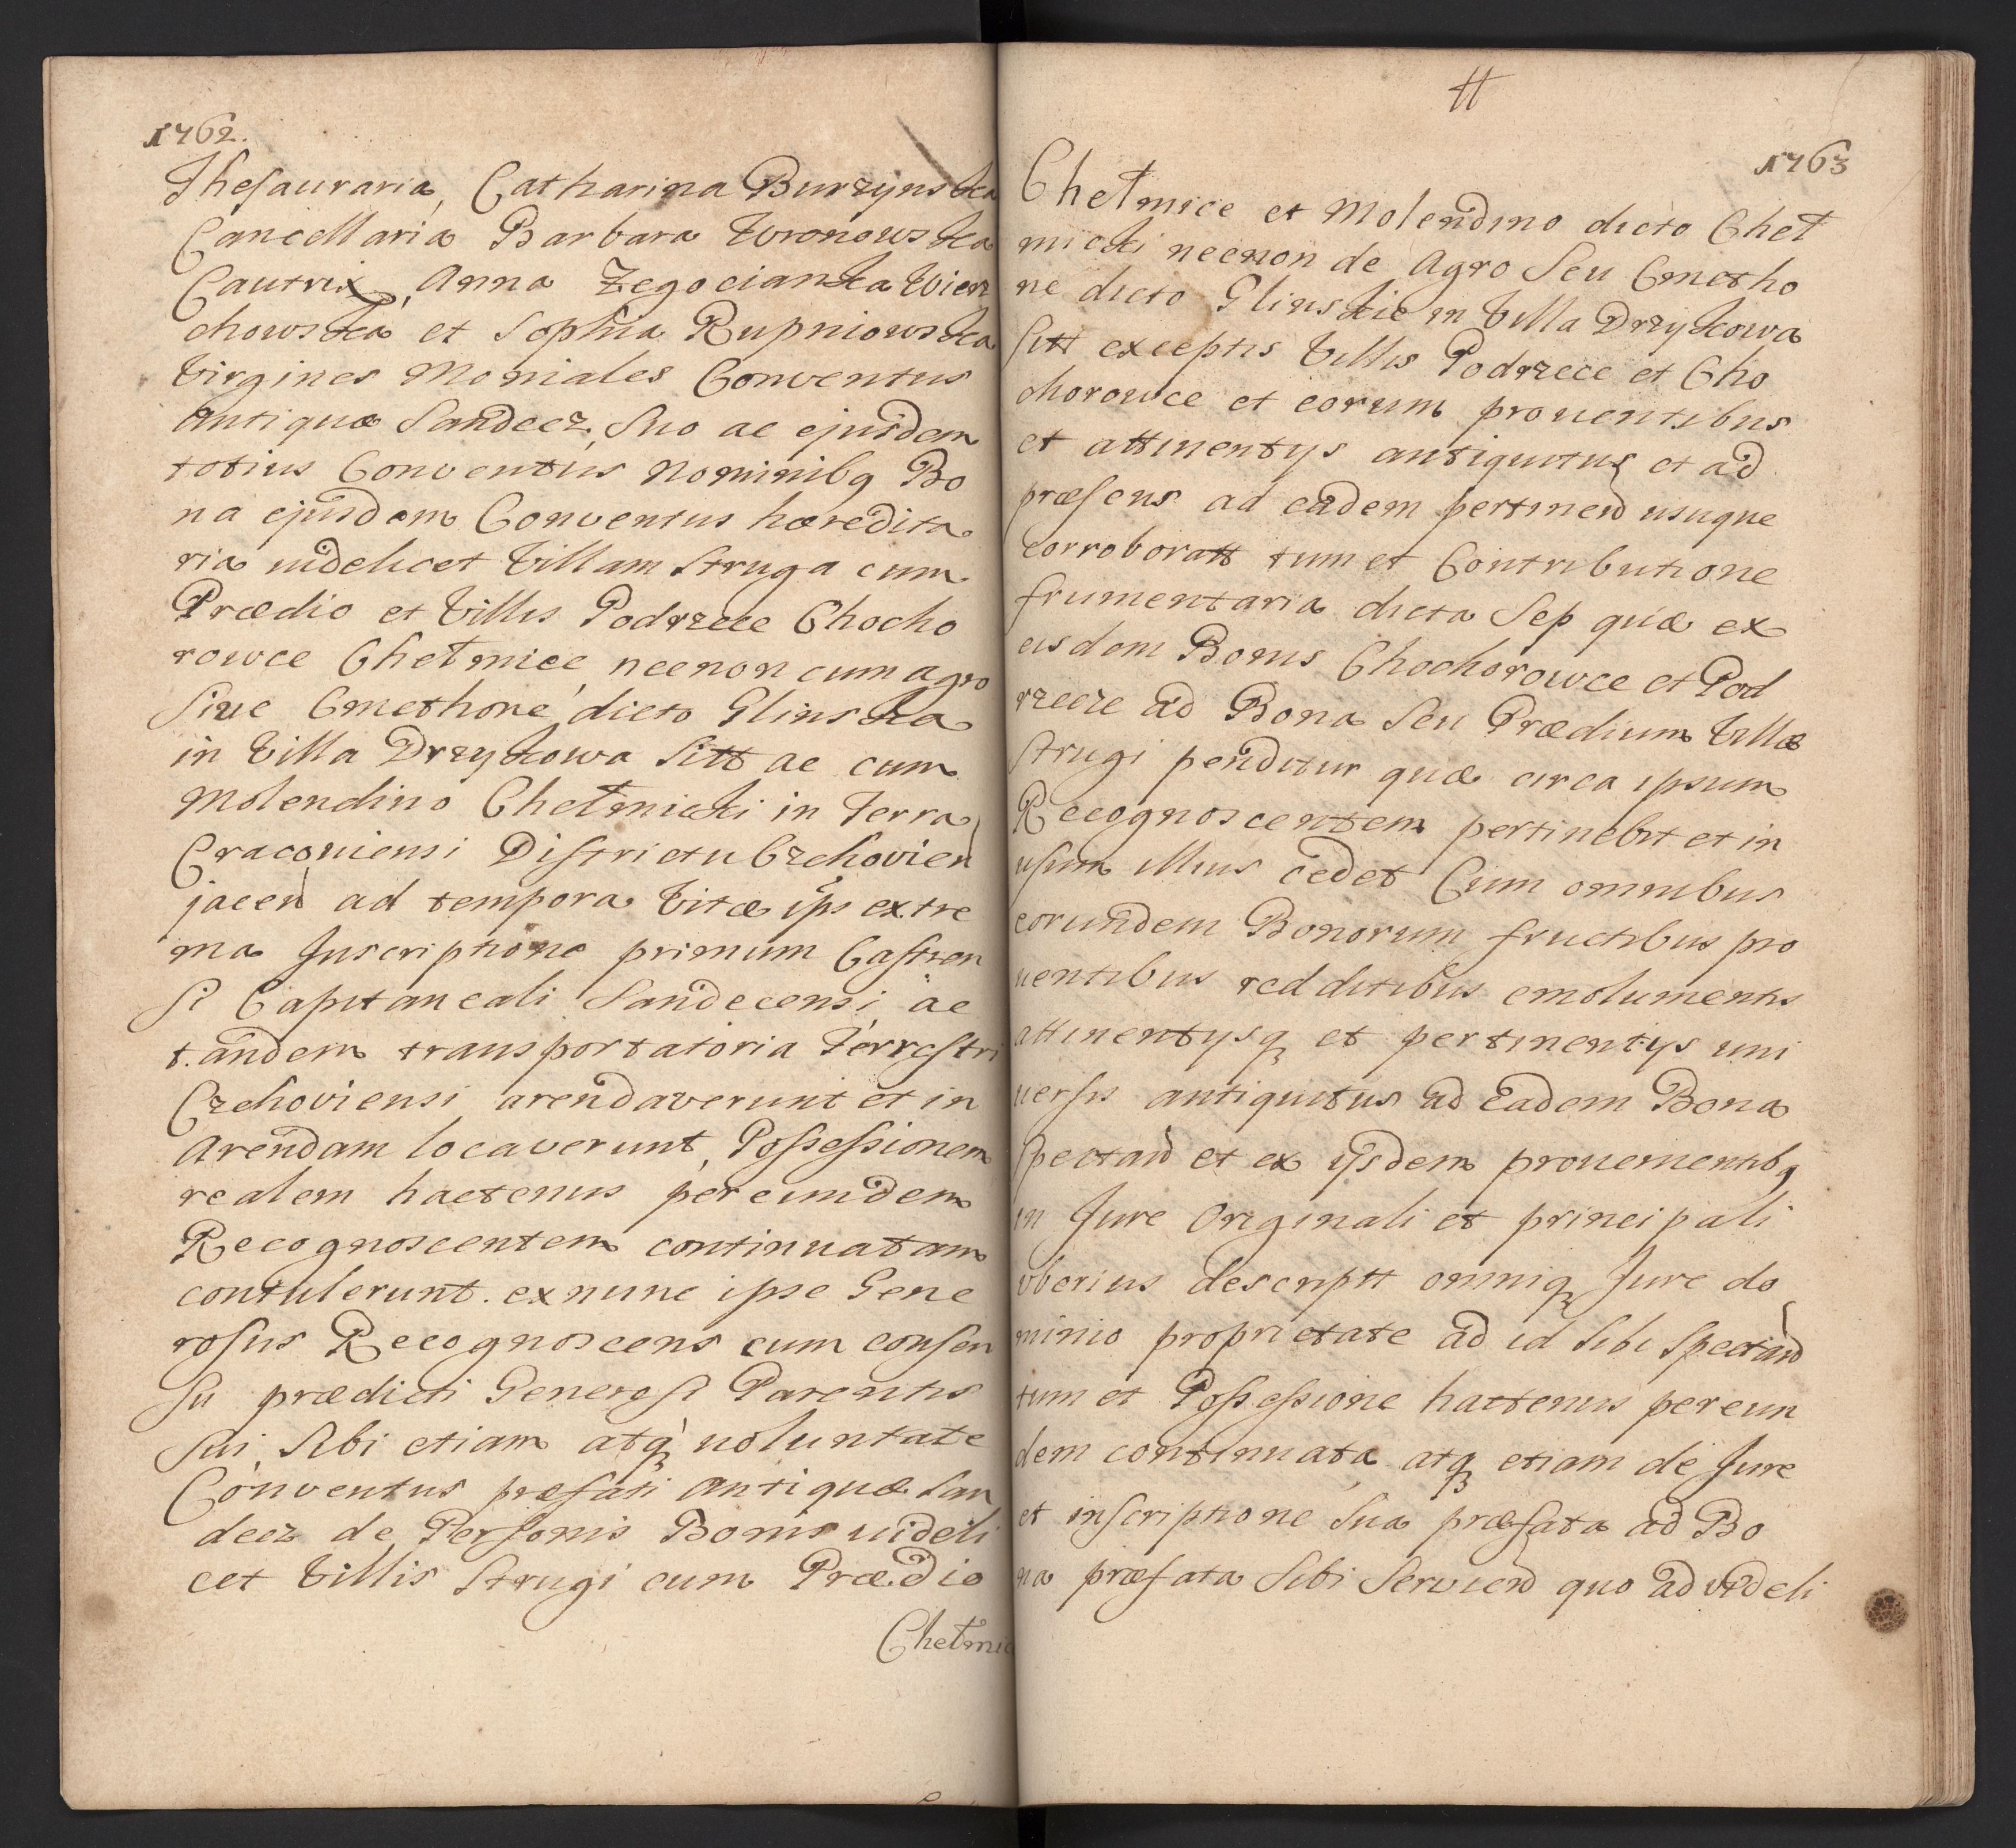 1762.
Thesauraria, Catharina Burzynska
Cancellaria Barbara Wronowska
Cautrix, Anna Zegocianka Wierz
chowska et Sophia Rupniowska
Virgines Moniales Conventus
Antiquæ Sandecz, Suo ac ejusdem
totius Conventus nominibq Bo
na ejusdem Conventus hæredita
ria videlicet Villam Struga cum
Prædio et Villis Podrzece Chocho
rowce Chełmice, necnon cum agro
sive Cmethone dicto Glinska
in Villa Drzykowa Sitt ac cum
Molendino Chełmicki in Terra
Cracoviensi Districtu Czchovien
jacen ad tempora Vitæ ips extre
ma Inscriptione primum Castren
si Capitaneali Sandecensi ac
tandem transportatoria Terrestri
Czchoviensi arendaverunt et in
Arendam locaverunt, Possessionem
realem hactenus per eundem
Recognoscentem continuatam
contulerunt. ex nunc ipse Gene
rosus Recognoscens cum consen
su prædicti Generosi Parentis
sui Sibi etiam atq voluntate
Conventus præfati Antiquæ San
decz de Personis Bonis videli
cet Villis Strugi cum Prædio
Chełmice
tt
1763
Chełmice et Molendino dicto Cheł
micki necnon de Agro Seu Cmetho
ne dicto Glinskie in Villa Drzykowa
Sitt exceptis Villis Podrzece et Cho
chorowce et eorum proventibus
et attinentys antiquitus et ad
præsens ad eadem pertinen usuque
corroboratt tum et Contributione
frumentaria dicta Sep quæ ex
eisdem Bonis Chochorowce et Pod
rzecze ad Bona Seu Prædium Villæ
Strugi penditur quæ circa ipsum
Recognoscentem pertinebit et in
usum illius cedet Cum omnibus
eorundem Bonorum fructibus pro
ventibus redditibus emolumentis
attinentysq et pertinentys uni
versis antiquitus ad Eadem Bona
Spectan et ex ysdem provenientibq
in Jure Originali et principali
uberius descriptt omniq Jure do
minio proprietate ad id sibi spectan
tum et Possessione hactenus per eun
dem continuata atq etiam de Jure
et inscriptione Sua præfata ad Bo
na præfata Sibi Servien quo ad videli